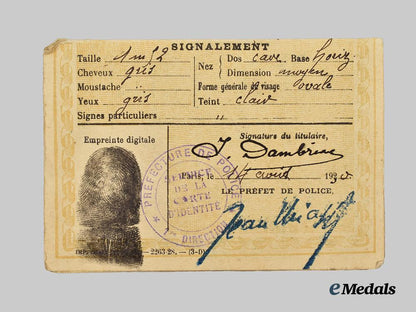 SIGNALEMENT
Taille 1 m 52
Cheveux gris
Moustache "
Yeux gris
Signes particuliers "
Nez { Dos cave Base horiz
Dimension moyen
Forme générale du visage ovale
Teint clair
Empreinte digitale
Signature du titulaire,
J. Dambrine
Paris, le 14 août 1930
LE PRÉFET DE POLICE,
PREFECTURE DE POLICE
SERVICE
DE LA
CARTE
D'IDENTITÉ
1re DIRECTION
2263-28. — (3-D)
eMedals